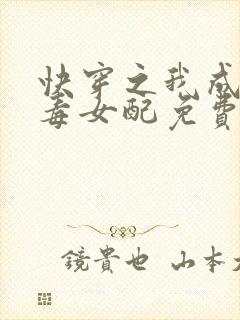 快穿之我成
毒女配免費
鏡貴也 山本